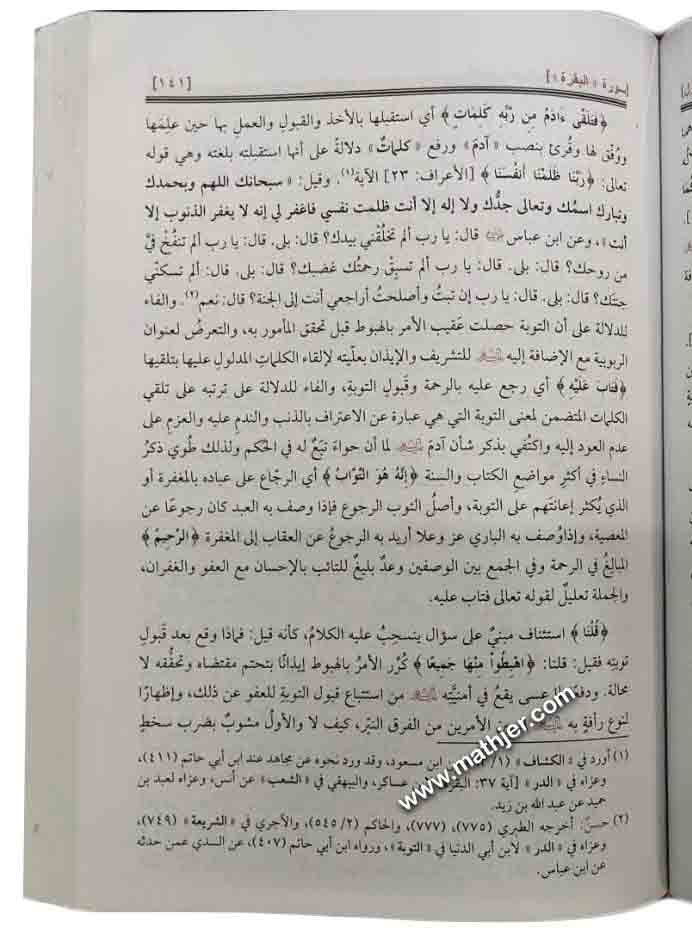 سورة «البقرة»
[١٤١]
﴿فَتَلَقَّى ءَادَمُ مِن رَّبِّهِ كَلِمَاتٍ﴾ أي استقبلها بالأخذ والقبولِ والعملِ بها حين علِمَها
ووُفّق لها وقُرئ بنصب «آدمَ» ورفع «كلماتٌ» دلالةً على أنها استقبلته بلغته وهي قوله
تعالى: ﴿رَبَّنَا ظَلَمْنَا أَنفُسَنَا﴾ [الأعراف: ٢٣] الآية(١). وقيل: «سبحانك اللهم وبحمدك
وتبارك اسمُك وتعالى جدُّك ولا إله إلا أنت ظلمت نفسي فاغفر لي إنه لا يغفر الذنوب إلا
أنت»، وعن ابن عباس قال: يا رب ألم تخلُقْني بيدك؟ قال: بلى. قال: يا رب ألم تنفُخْ فيَّ
من روحك؟ قال: بلى. قال: يا رب ألم تسبِقْ رحمتُك غضبَك؟ قال: بلى. قال: ألم تسكنّي
جنتَك؟ قال: بلى. قال: يا رب إن تبتُ وأصلحتُ أراجعي أنت إلى الجنة؟ قال: نعم(٢). والفاء
للدلالة على أن التوبة حصلت عَقيب الأمر بالهبوط قبل تحقق المأمور به، والتعرضُ لعنوان
الربوبية مع الإضافة إليه للتشريف والإيذان بعلّيته لإلقاء الكلماتِ المدلولِ عليها بتلقيها
﴿فَتَابَ عَلَيْهِ﴾ أي رجع عليه بالرحمة وقَبولِ التوبةِ، والفاء للدلالة على ترتبه على تلقي
الكلمات المتضمن لمعنى التوبة التي هي عبارة عن الاعتراف بالذنب والندمِ عليه والعزمِ على
عدم العود إليه واكتُفي بذكر شأن آدمَ لما أن حواءَ تبَعٌ له في الحكم ولذلك طُوي ذكرُ
النساءِ في أكثرِ مواضعِ الكتاب والسنة ﴿إِنَّهُ هُوَ التَّوَّابُ﴾ أي الرجّاع على عباده بالمغفرة أو
الذي يُكثر إعانتَهم على التوبة، وأصلُ التوب الرجوع فإذا وصف به العبد كان رجوعًا عن
المعصية، وإذاوُصف به الباري عز وعلا أريد به الرجوعُ عن العقاب إلى المغفرة ﴿الرَّحِيمُ﴾
المبالِغُ في الرحمة وفي الجمع بين الوصفين وعدٌ بليغٌ للتائب بالإحسان مع العفو والغفران،
والجملة تعليلٌ لقوله تعالى فتاب عليه.
﴿قُلْنَا﴾ استئناف مبنيٌّ على سؤال ينسحِبُ عليه الكلامُ، كأنه قيل: فماذا وقع بعد قَبولِ
توبتِه فقيل: قلنا: ﴿اهْبِطُوا۟ مِنْهَا جَمِيعًا﴾ كُرِّر الأمرُ بالهبوط إيذانًا بتحتم مقتضاه وتحقُّقِه لا
محالة. ودفعًا لما عسى يقعُ في أمنيَّتِه من استتباع قبول التوبةِ للعفو عن ذلك، وإظهارًا
لنوع رأفةٍ به الأمرين من الفرق النيّر، كيف لا والأولُ مشوبٌ بضرب سخطٍ
(١) أورد في «الكشاف» (١/ ابن مسعود، وقد ورد نحوه عن مجاهد عند ابن أبي حاتم (٤١١)،
وعزاه في «الدر» [آية ٣٧: البقرة] عساكر، والبيهقي في «الشعب» عن أنس، وعزاه لعبد بن
حميد عن عبد الله بن زيد.
(٢) حسنٌ: أخرجه الطبري (٧٧٥)، (٧٧٧)، والحاكم (٥٤٥/٢)، والآجري في «الشريعة» (٧٤٩)،
وعزاه في «الدر» لابن أبي الدنيا في «التوبة»، ورواه ابن أبي حاتم (٤٠٧)، عن السدي عمن حدثه
عن ابن عباس.
www.mathjer.com